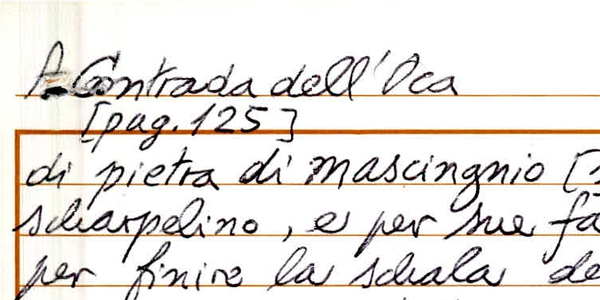 A Contrada dell'Oca
[pag. 125]
di pietra di mascingnio [
scharpelino, e per sue fa
per finire la schala de